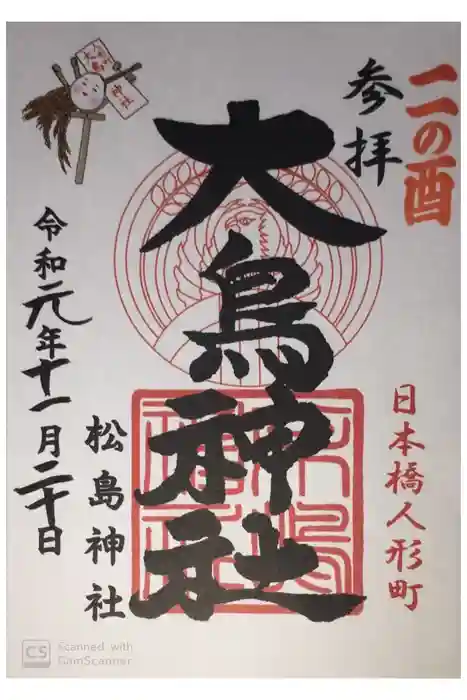 二の酉
参拝
日本橋人形町
大鳥神社
松島神社
令和元年十一月二十日
CS Scanned with
CamScanner